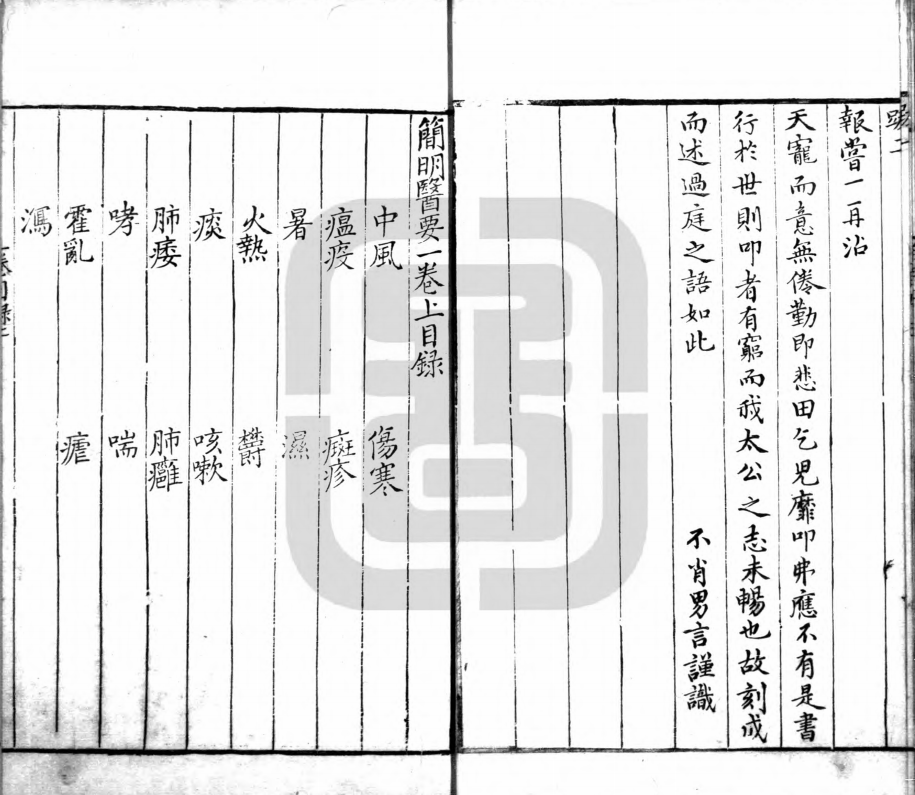 跋二
報嘗一再沾
天寵而意無倦勤即悲田乞児靡叩弗應不有是書
行於世則叩者有窮而我太公之志未暢也故刻成
而述過庭之語如此
不肖男言謹識
簡明醫要一卷上目録
中風 傷寒
瘟疫 癍疹
暑 濕
火熱 欝
痰 咳嗽
肺痿 肺癰
哮 喘
霍亂 瘧
瀉